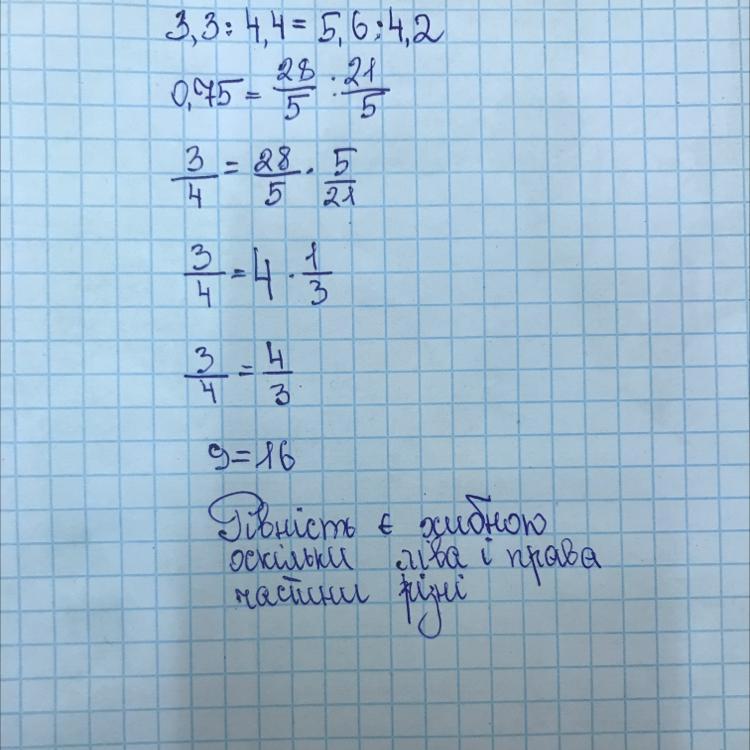 3,3 : 4,4 = 5,6 : 4,2
0,75 = 28/5 : 21/5
3/4 = 28/5 · 5/21
3/4 = 4 · 1/3
3/4 = 4/3
9 = 16
Рівність є хибною
оскільки ліва і права
частини різні